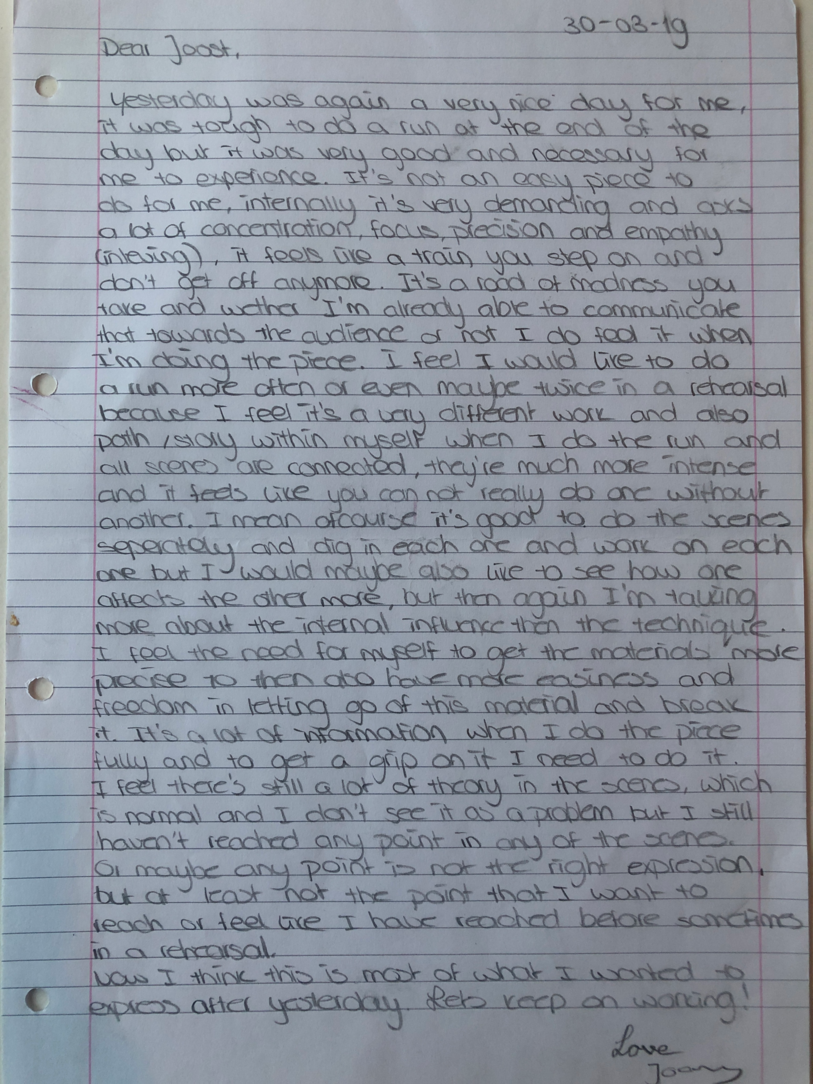 30-03-19
Dear Joost,
Yesterday was again a very nice day for me,
it was tough to do a run at the end of the
day but it was very good and necessary for
me to experience. It's not an easy piece to
do for me, internally it's very demanding and asks
a lot of concentration, focus, precision and empathy
(inleving), it feels like a train, you step on and
don't get off anymore. It's a road of madness you
take and wether I'm already able to communicate
that towards the audience or not I do feel it when
I'm doing the piece. I feel I would like to do
a run more often or even maybe twice in a rehearsal
because I feel it's a very different work and also
path /story within myself when I do the run and
all scenes are connected, they're much more intense
and it feels like you can not really do one without
another. I mean ofcourse it's good to do the scenes
seperately and dig in each one and work on each
one but I would maybe also like to see how one
affects the other more, but then again I'm talking
more about the internal influence then the technique.
I feel the need for myself to get the materials more
precise to then also have more easiness and
freedom in letting go of this material and break
it. It's a lot of information when I do the piece
fully and to get a grip on it I need to do it.
I feel there's still a lot of theory in the scenes, which
is normal and I don't see it as a problem but I still
haven't reached any point in any of the scenes.
Or maybe any point is not the right expression,
but at least not the point that I want to
reach or feel like I have reached before sometimes
in a rehearsal.
Now I think this is most of what I wanted to
express after yesterday. Lets keep on working!
Love